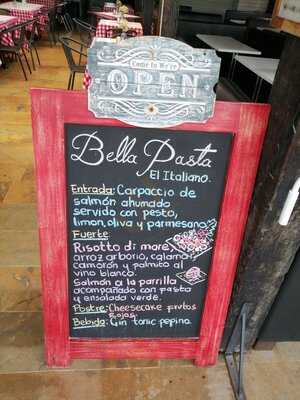 Come in We're
OPEN
Bella Pasta
El Italiano.
Entrada: Carpaccio de
salmón ahumado
servido con pesto,
limon, oliva y parmesano
Fuerte:
Risotto di mare
arroz arborio, calamar,
camarón y palmito al
vino blanco.
Salmón a la parrilla
acompañado con pasta
y ensalada verde.
Postre: Cheesecake frutos
rojos.
Bebida: Gin tonic pepino.